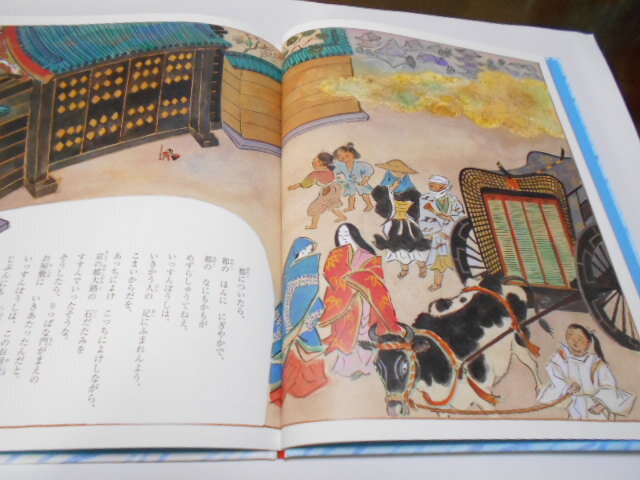 都についたら、
都の ほんに にぎやかで、
都の なにもかもが
めずらしゅうてねえ。
いっすんぼうしは、
いきかう人の 足にふまれしよう、
こまいからだを、
あっちによけ こっちによけしながら、
京の都大路の 石だたみを
すすんでいったそうな。
そうしたら、りっぱな門がまえの
お屋敷に いきあたったんだとう
いっすんぼうしは、
このお屋